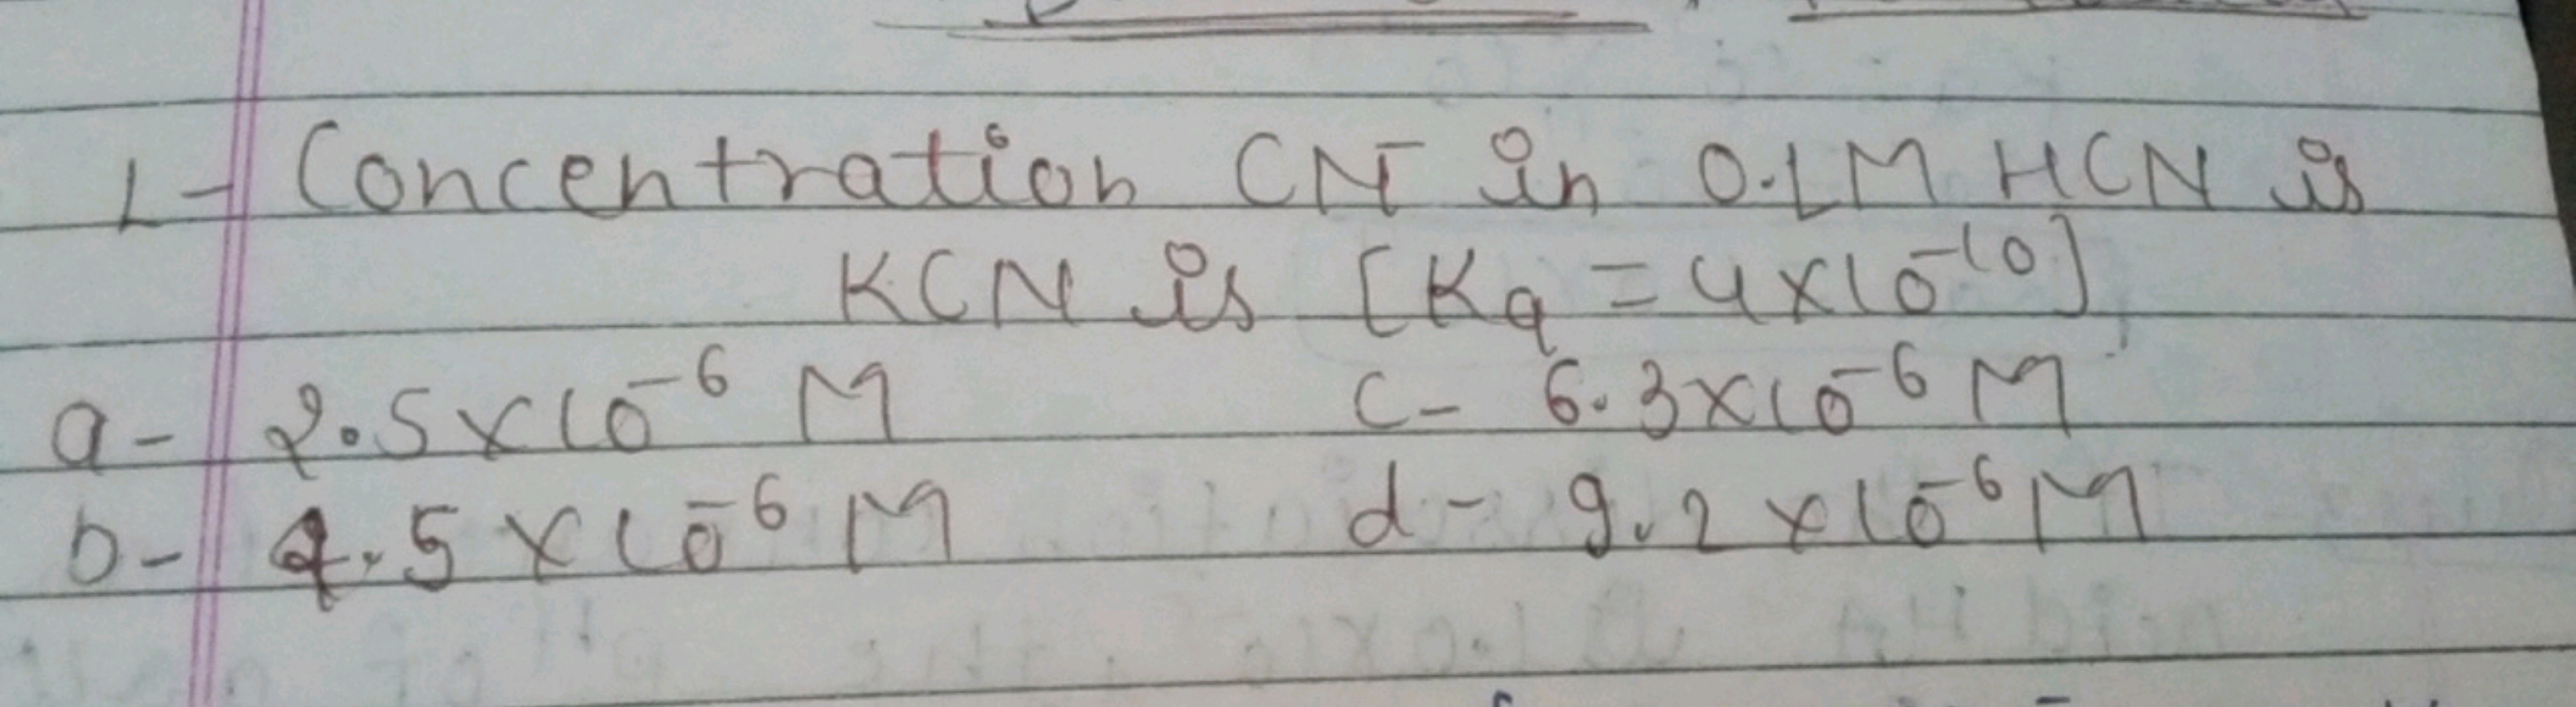 1- Concentration CN⁻ in 0.1M HCN is
KCN is [Ka = 4×10⁻¹⁰]
a- 2.5×10⁻⁶ M c- 6.3×10⁻⁶ M
b- 4.5×10⁻⁶ M d- 9.2×10⁻⁶ M